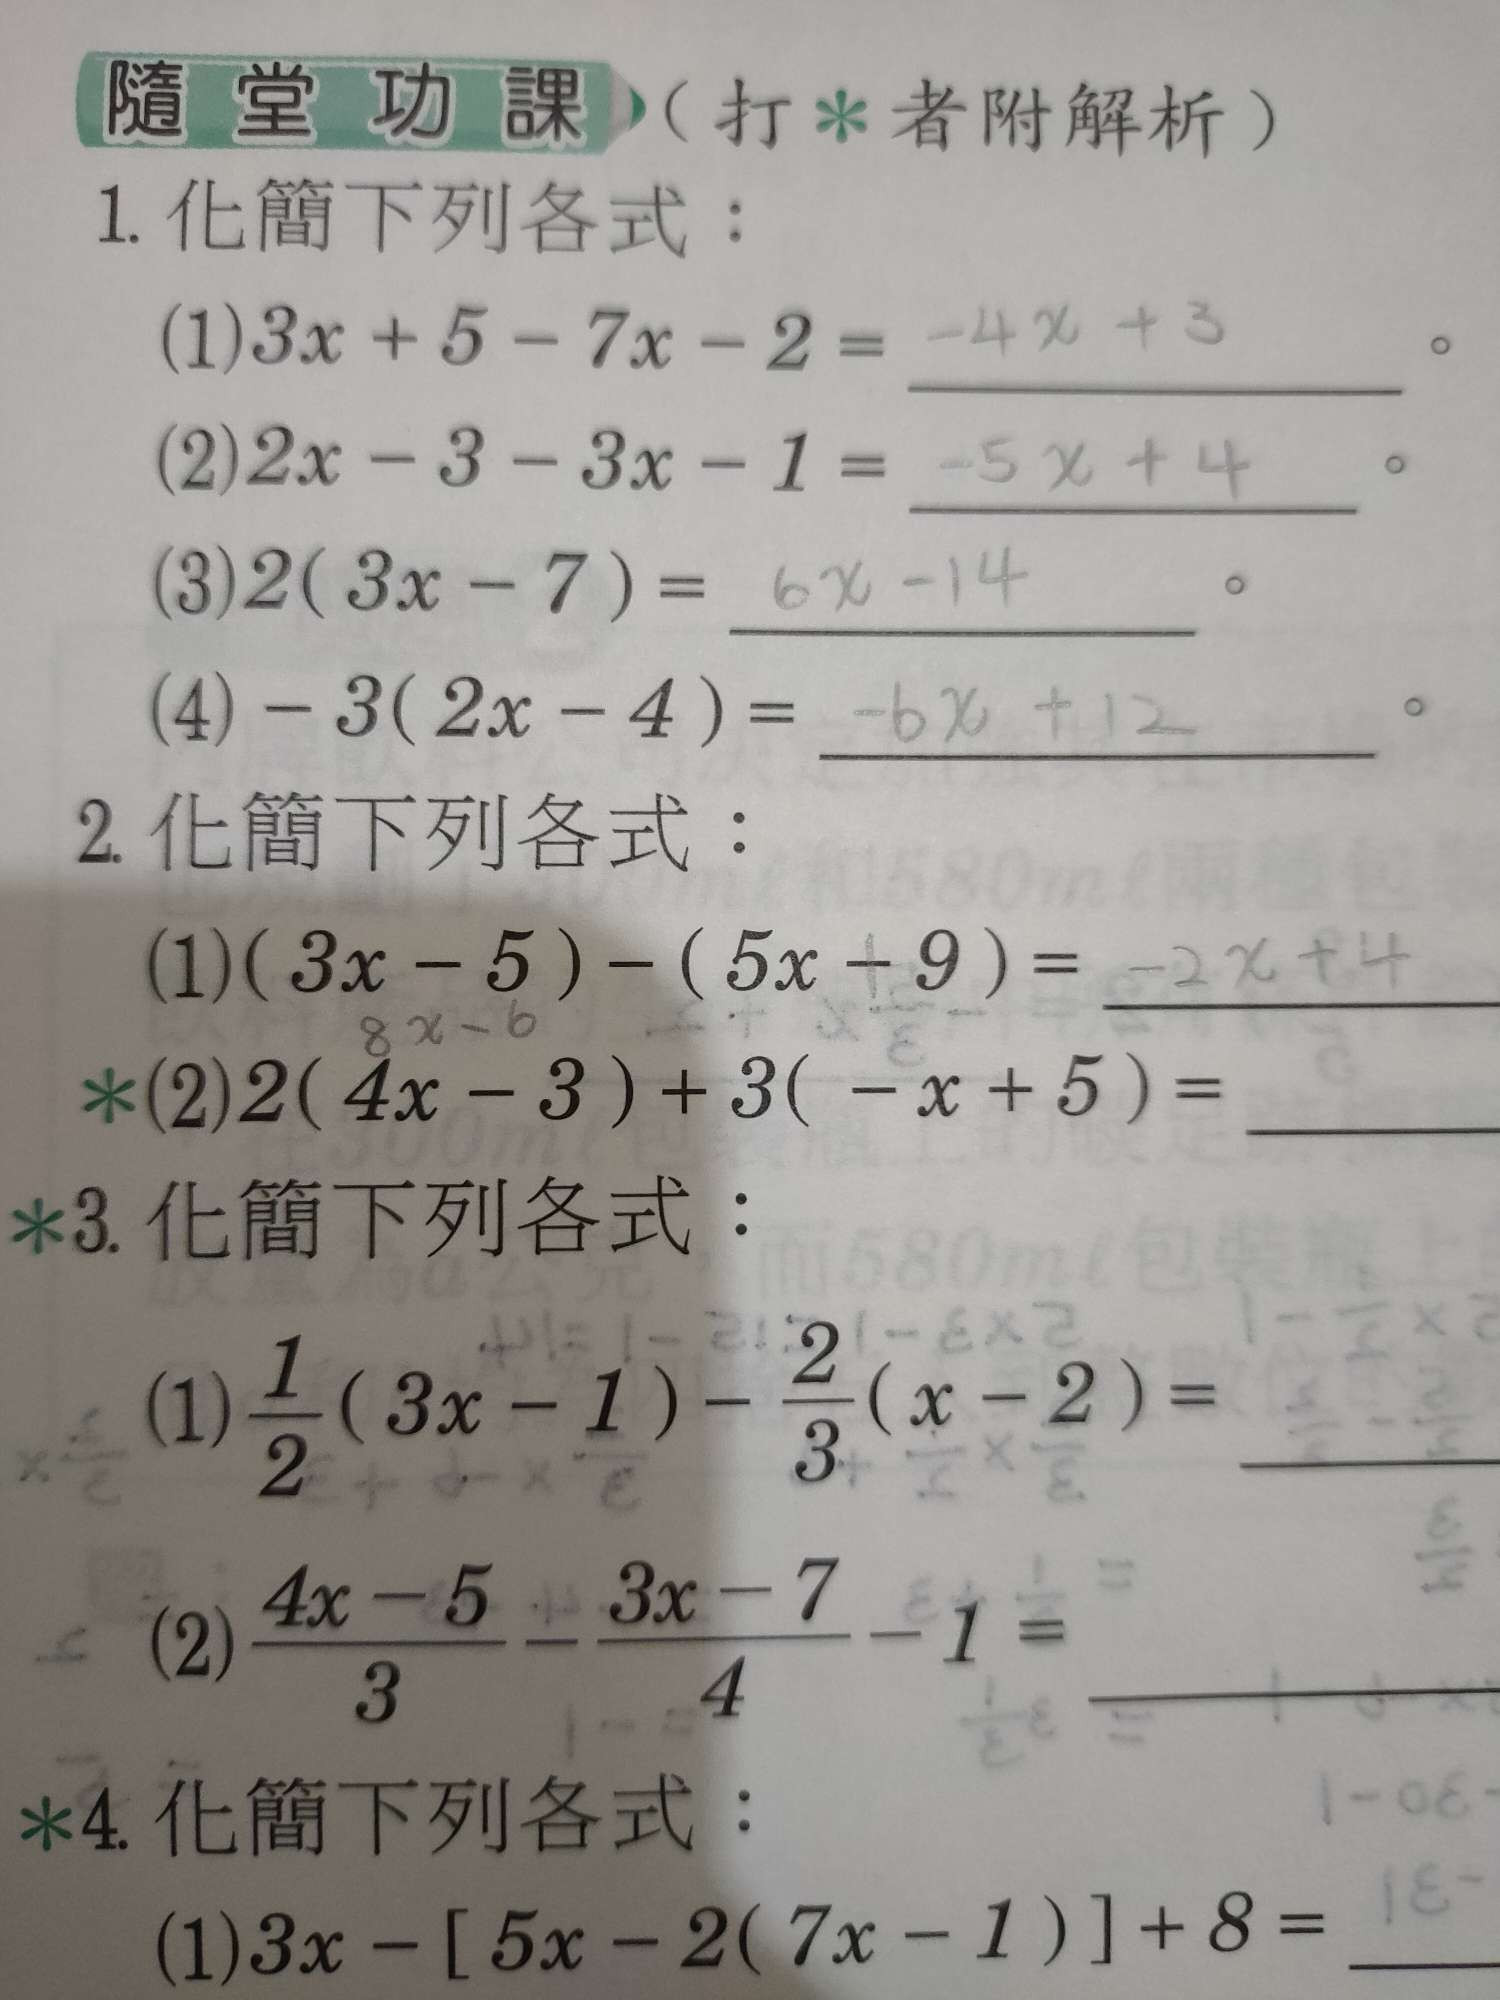 隨堂功課(打*者附解析)
1. 化簡下列各式：
(1)3x+5-7x-2= -4x+3 。
(2)2x-3-3x-1= -5x+4 。
(3)2(3x-7)= 6x-14 。
(4)-3(2x-4)= -6x+12 。
2. 化簡下列各式：
(1)(3x-5)-(5x+9)= -2x+4
8x-6
*(2)2(4x-3)+3(-x+5)=
*3. 化簡下列各式：
(1)1/2(3x-1)-2/3(x-2)=
(2)(4x-5)/3-(3x-7)/4-1=
*4. 化簡下列各式：
(1)3x-[5x-2(7x-1)]+8=